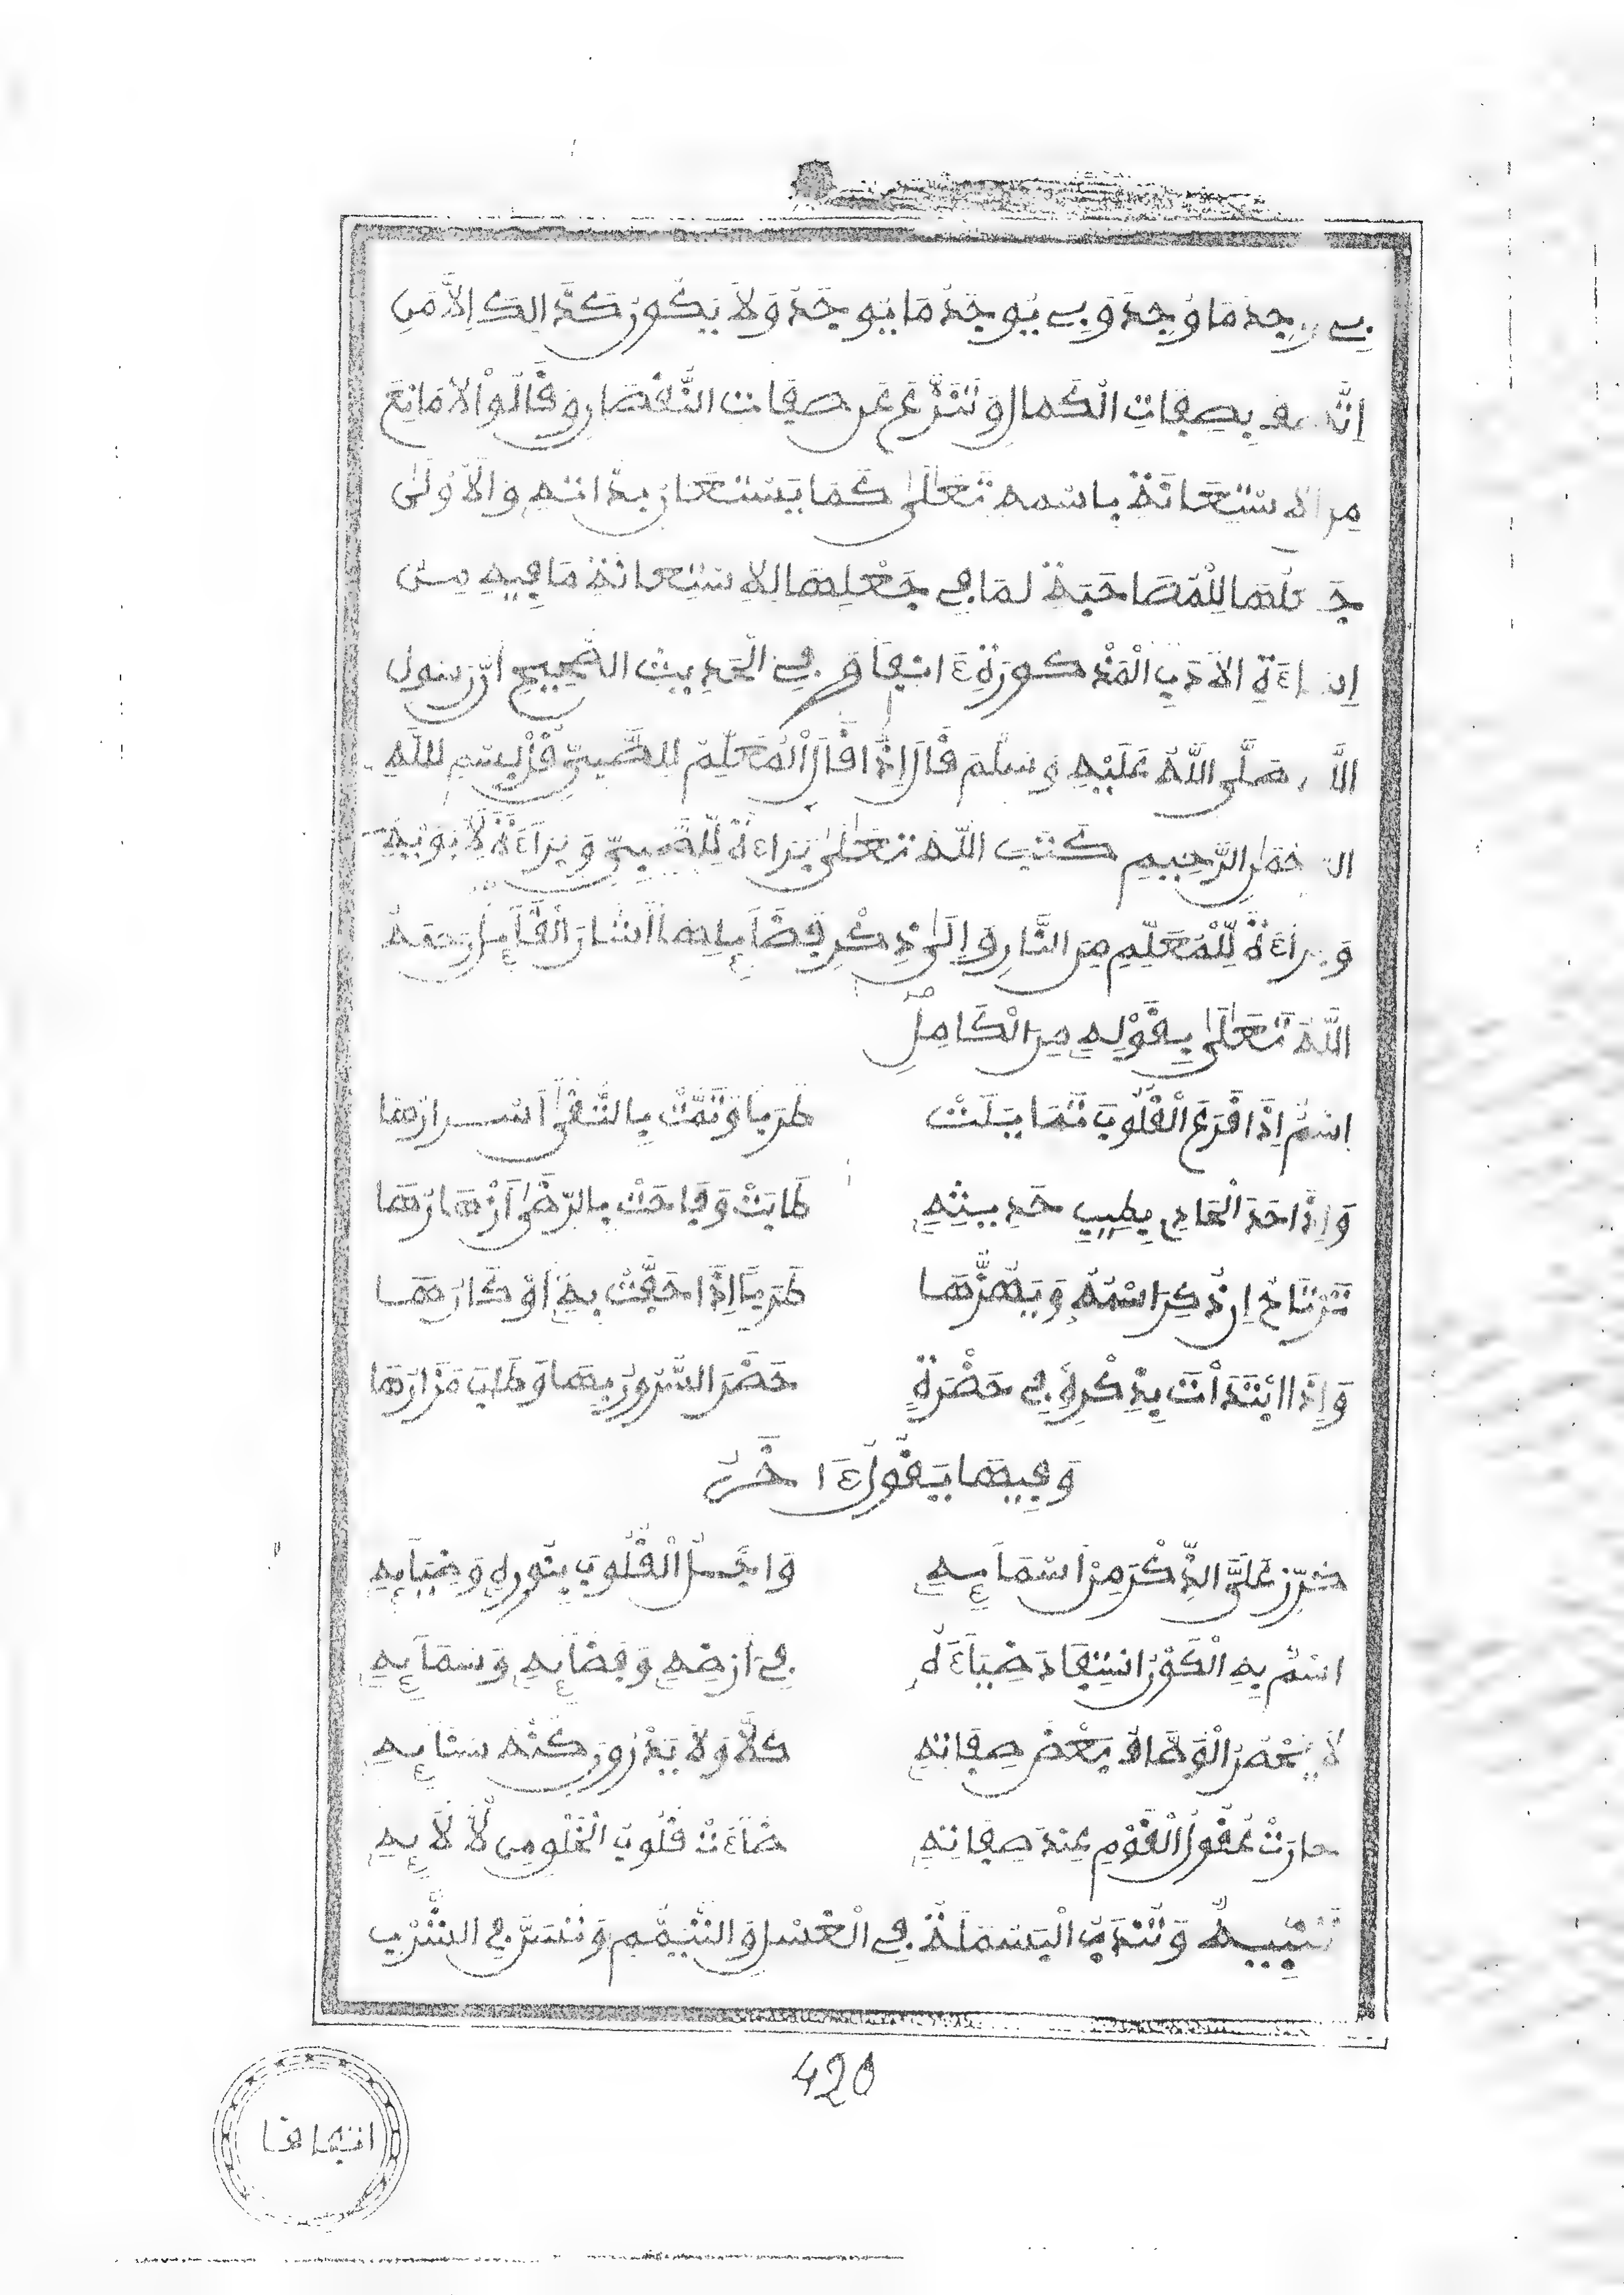 بِي وُجِدَ مَا وُجِدَ وَبِي يُوجَدُ مَا يُوجَدُ وَلَا يَكُونُ كَذَالِكَ إِلَّا مَنِ
اتَّصَفَ بِصِفَاتِ الْكَمَالِ وَتَنَزَّهَ عَنْ صِفَاتِ النُّقْصَانِ وَقَالُواْ لَا مَانِعَ
مِنَ الِاسْتِعَانَةِ بِاسْمِهِ تَعَالَىٰ كَمَا يُسْتَعَانُ بِذَاتِهِ وَالْأَوْلَىٰ
جَعْلُهَا لِلْمُصَاحَبَةِ لِمَا فِي جَعْلِهَا لِلِاسْتِعَانَةِ مَا فِيهِ مِنْ
إِسَاءَةِ الْأَدَبِ الْمَذْكُورَةِ ءَانِفًا وَفِي الْحَدِيثِ الصَّحِيحِ أَنَّ رَسُولَ
اللَّهِ صَلَّى اللَّهُ عَلَيْهِ وَسَلَّمَ قَالَ إِذَا قَالَ الْمُعَلِّمُ لِلصَّبِيِّ قُلْ بِسْمِ اللَّهِ
الرَّحْمَٰنِ الرَّحِيمِ كَتَبَ اللَّهُ تَعَالَىٰ بَرَاءَةً لِلصَّبِيِّ وَبَرَاءَةً لِأَبَوَيْهِ
وَبَرَاءَةً لِلْمُعَلِّمِ مِنَ النَّارِ وَإِلَىٰ ذِكْرِ فَضَائِلِهَا أَشَارَ الْقَائِلُ رَحِمَهُ
اللَّهُ تَعَالَىٰ بِقَوْلِهِ مِنَ الْكَامِلِ
اسْمٌ إِذَا قَرَعَ الْقُلُوبَ تَمَايَلَتْ طَرَبًا وَنَمَّتْ بِالتُّقَىٰ أَسْرَارُهَا
وَإِذَا حَدَا الْحَادِي بِطِيبِ حَدِيثِهِ طَابَتْ وَفَاحَتْ بِالرِّضَىٰ أَزْهَارُهَا
تَرْتَاحُ إِنْ ذُكِرَ اسْمُهُ وَيَهُزُّهَا طَرَبًا إِذَا حَفَّتْ بِهِ أَوْكَارُهَا
وَإِذَا ابْتَدَأْتَ بِذِكْرِهِ فِي حَضْرَةٍ حَضَرَ السُّرُورُ بِهَا وَطَابَ مَزَارُهَا
وَفِيهَا يَقُولُ ءَاخَرُ
كَرِّرْ عَلَيَّ الذِّكْرَ مِنْ أَسْمَائِهِ وَاجْلُ الْقُلُوبَ بِنُورِهِ وَضِيَائِهِ
اسْمٌ بِهِ الْكَوْنُ اسْتَفَادَ ضِيَاءَهُ فِي أَرْضِهِ وَفَضَائِهِ وَسَمَائِهِ
لَا يَحْصُرُ الْوَصَّافُ بَعْضَ صِفَاتِهِ كَلَّا وَلَا يَدْرُونَ كُنْهَ سَنَائِهِ
حَارَتْ عُقُولُ الْقَوْمِ عِنْدَ صِفَاتِهِ ضَاءَتْ قُلُوبُ الْخَلْقِ مِنْ لَأْلَائِهِ
تَنْبِيهٌ وَتُنْدَبُ الْبَسْمَلَةُ فِي الْغُسْلِ وَالتَّيَمُّمِ وَتُسَنُّ فِي الشُّرْبِ
420